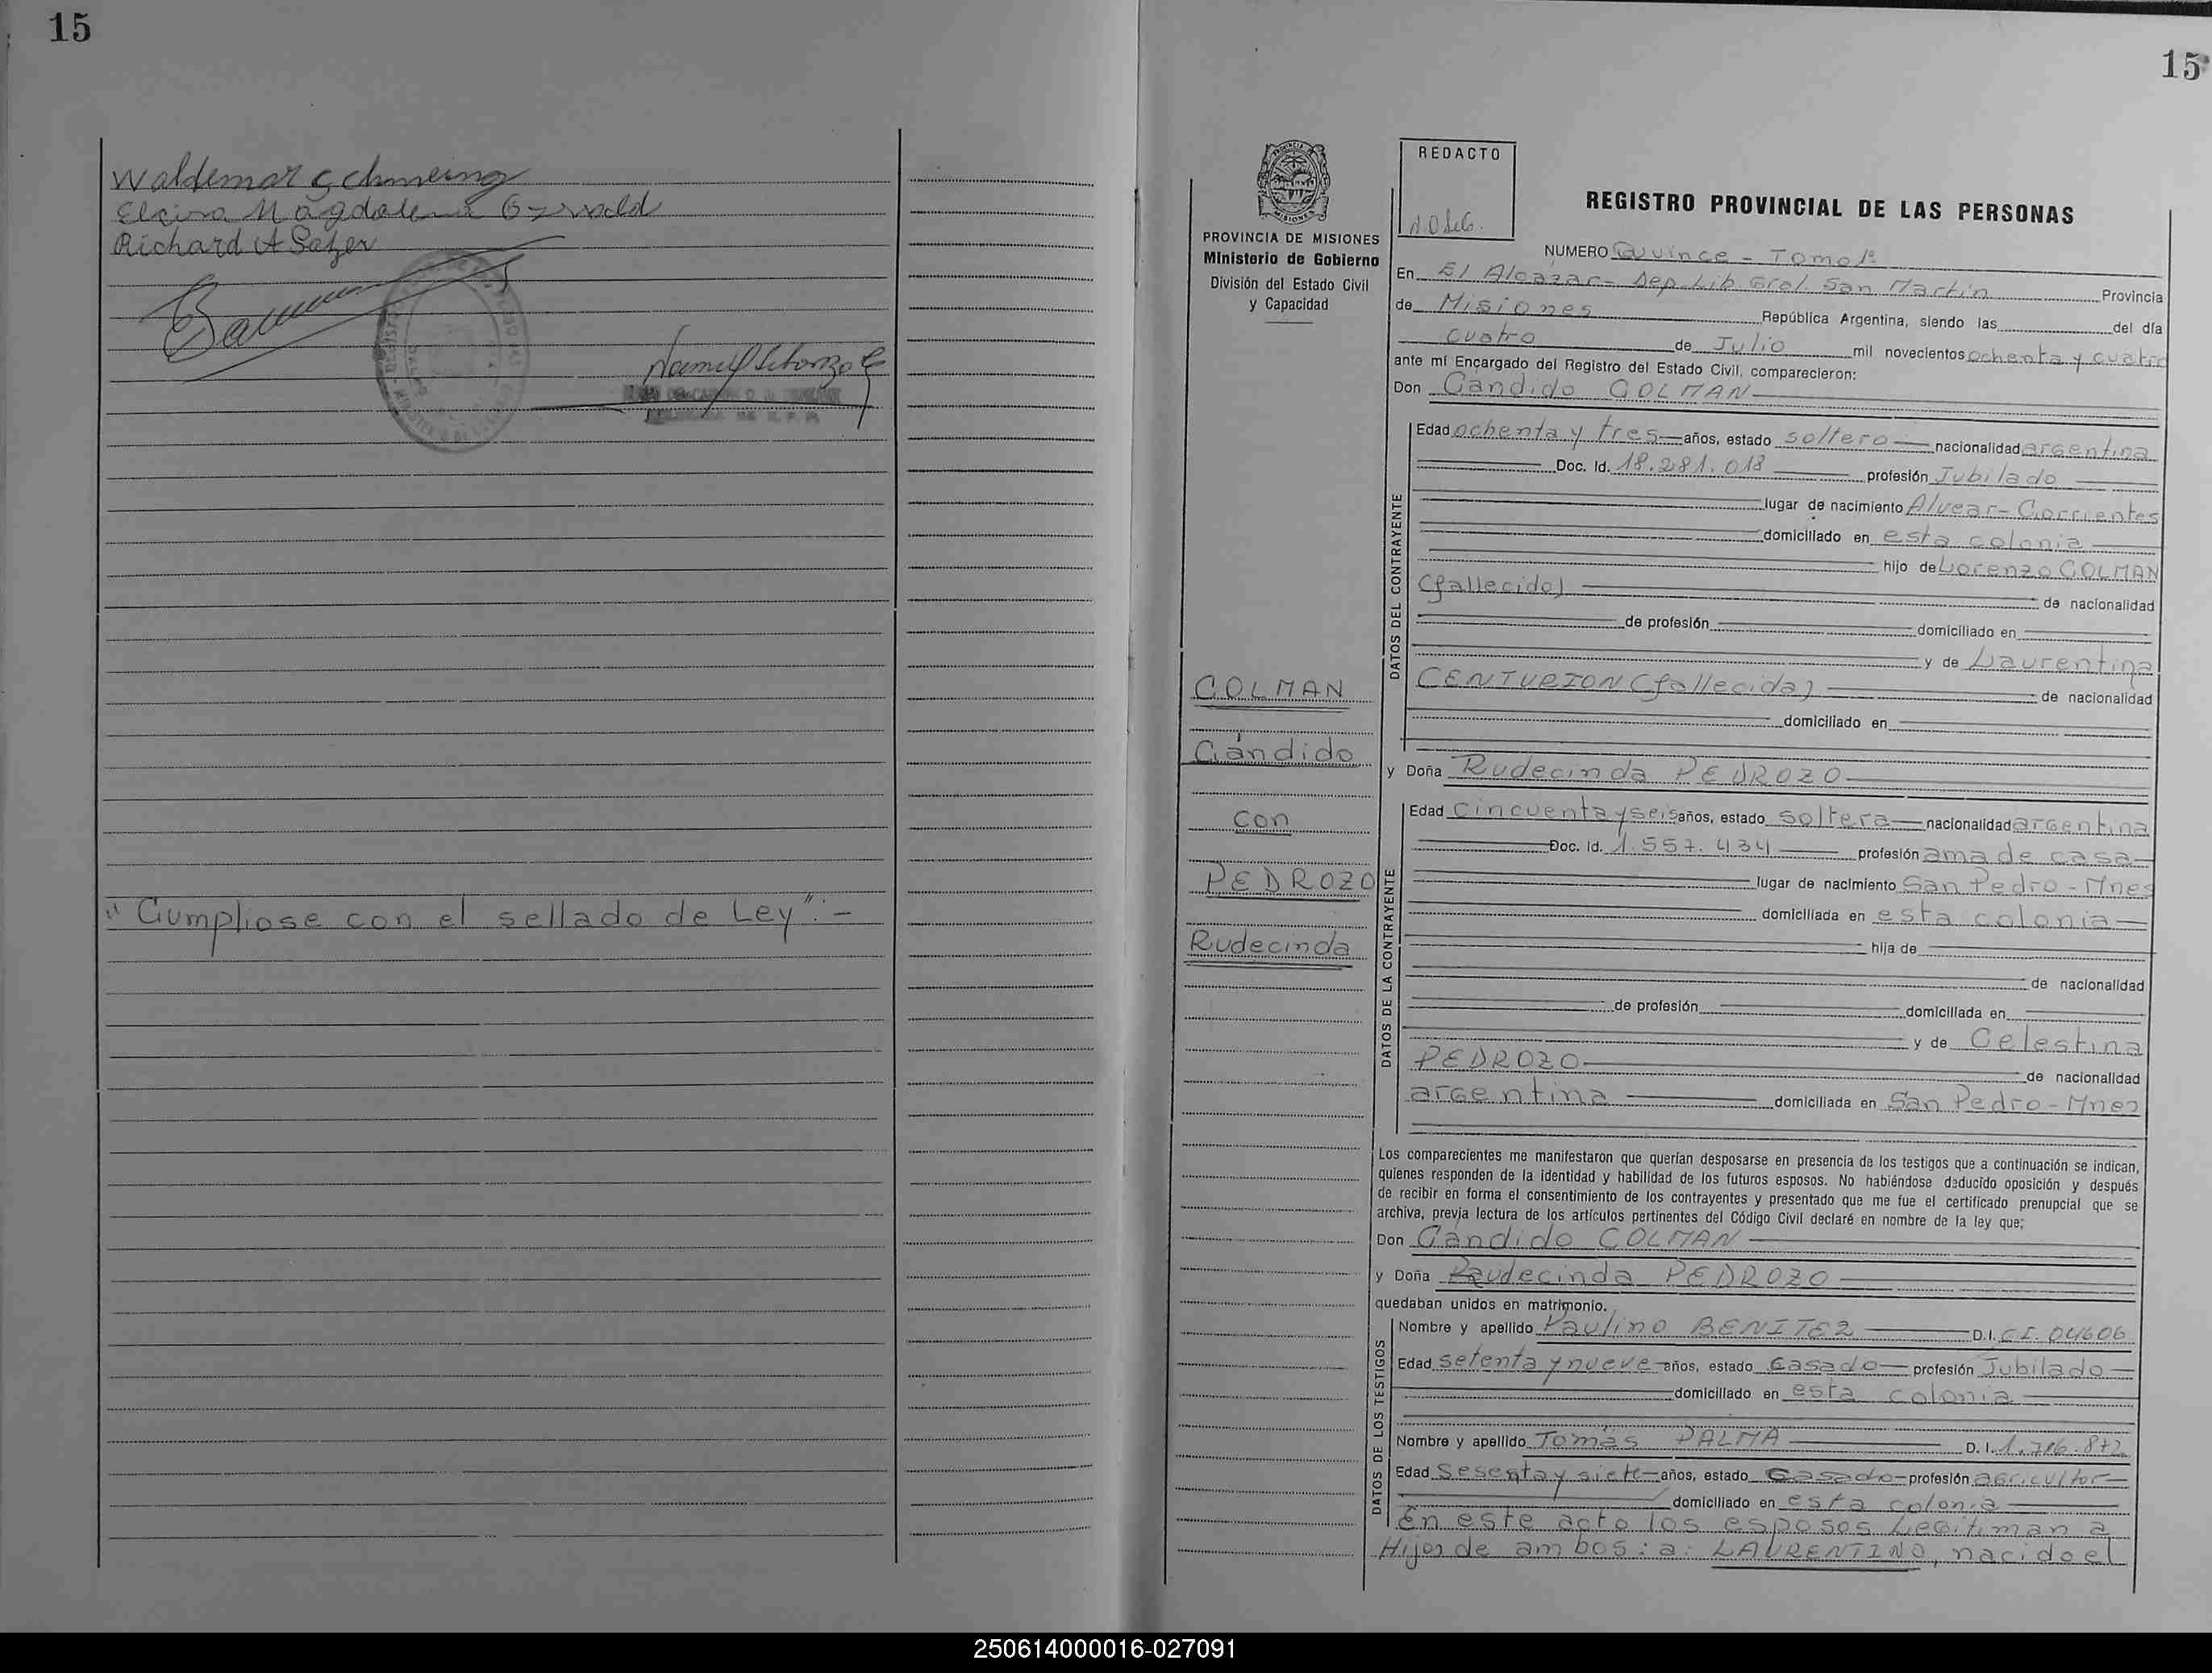 15
Waldemar Schmeing
Elcira Magdalena
Richard A Satzer
"Cumpliose con el sellado de Ley".-
15
REDACTO
PROVINCIA DE MISIONES
Ministerio de Gobierno
División del Estado Civil
y Capacidad
COLMAN
Cándido
con
PEDROZO
Rudecinda
REGISTRO PROVINCIAL DE LAS PERSONAS
NUMERO Quince - Tomo 1º
En El Alcazar- Dep. Lib. Gral. San Martin Provincia
de Misiones República Argentina, siendo las del día
cuatro de Julio mil novecientos ochenta y cuatro
ante mí Encargado del Registro del Estado Civil, comparecieron:
Don Cándido COLMAN
DATOS DEL CONTRAYENTE
Edad ochenta y tres años, estado soltero nacionalidad argentina
Doc. Id. 18.281.018 profesión Jubilado
lugar de nacimiento Alvear - Corrientes
domiciliado en esta colonia
hijo de Lorenzo COLMAN
(fallecido) de nacionalidad
de profesión domiciliado en
y de Laurentina
CENTURION (fallecida) de nacionalidad
domiciliado en
y Doña Rudecinda PEDROZO
DATOS DE LA CONTRAYENTE
Edad cincuenta y seis años, estado soltera nacionalidad argentina
Doc. Id. 1.557.434 profesión ama de casa
lugar de nacimiento San Pedro - Mnes
domiciliada en esta colonia
hija de
de nacionalidad
de profesión domiciliada en
y de Celestina
PEDROZO de nacionalidad
argentina domiciliada en San Pedro - Mnes
Los comparecientes me manifestaron que querían desposarse en presencia de los testigos que a continuación se indican,
quienes responden de la identidad y habilidad de los futuros esposos. No habiéndose deducido oposición y después
de recibir en forma el consentimiento de los contrayentes y presentado que me fue el certificado prenupcial que se
archiva, previa lectura de los artículos pertinentes del Código Civil declaré en nombre de la ley que;
Don Cándido COLMAN
y Doña Rudecinda PEDROZO
quedaban unidos en matrimonio.
DATOS DE LOS TESTIGOS
Nombre y apellido Paulino BENITEZ D.I. C.I. 04606
Edad setenta y nueve años, estado Casado profesión Jubilado
domiciliado en esta colonia
Nombre y apellido Tomás PALMA D. I. 1.716.872
Edad Sesenta y siete años, estado Casado profesión agricultor
domiciliado en esta colonia
En este acto los esposos Legitiman a
Hijos de ambos: a: LAURENTINO, nacido el
250614000016-027091